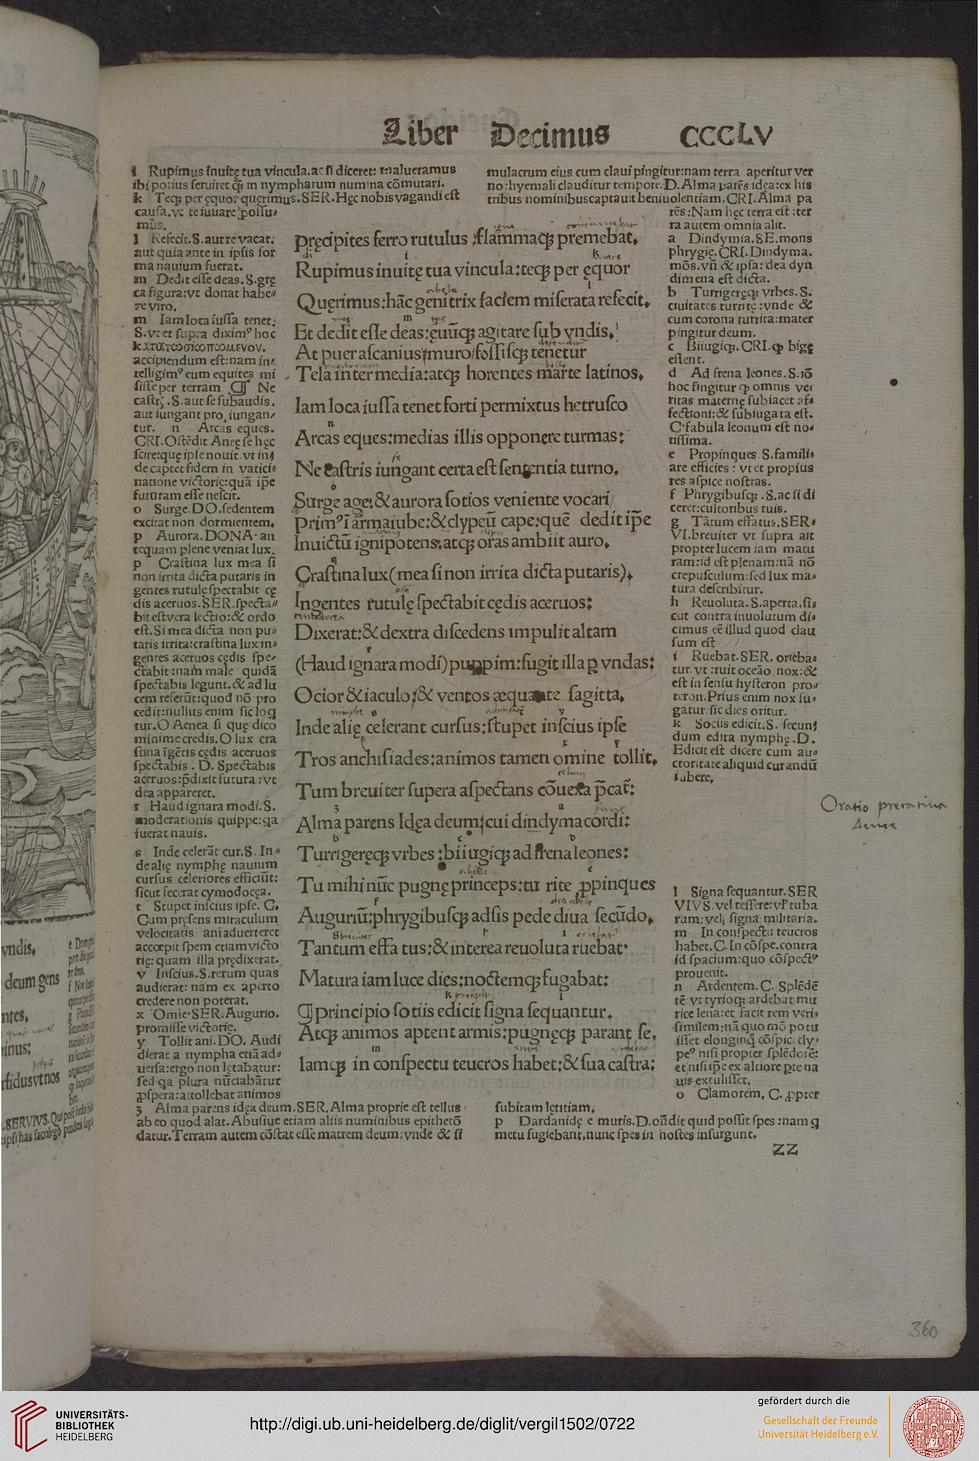 Liber Decimus CCCLV
i Rupimus inuitę tua vincula.ac si diceret: malueramus
ibi potius seruire q̃ in nympharum numina cōmutari.
k Teq; per equor querimus.SER.Hęc nobis vagandi est
causa.vt te iuuare possu⸗
mus.
l Refecit.S.aut re vacat.
aut quia ante in ipsis for
ma nauium fuerat.
m Dedit esse deas.S.gre
ca figura:vt donat habe⸗
re viro.
m Iam loca iussa tenet:
S.vt et supra diximꝰ hoc
accipiendum est:nam in⸗
telligimꝰ cum equites mi
sisse per terram ¶ Ne
castr;.S.aut se subaudis.
aut iungant pro iungan⸗
tur. n Arcas eques.
CRI.Ostēdit Aneę se hęc
scire:quę ipse nouit.vt in
de captet fidem in vatici⸗
natione victorię:quā ip̄e
futuram esse nescit.
o Surge.DO.sedentem
excitat non dormientem.
p Aurora.DONA. an
tequam plene veniat lux.
p Crastina lux mea si
non irrita dicta putaris in
gentes rutulę spectabit cę
dis aceruos.SER.specta⸗
bit est vera lectio:& ordo
est.Si mea dicta non pu⸗
taris irrita:crastina lux in⸗
gentes aceruos cędis spe⸗
ctabit:nam male quidā
spectabis legunt.& ad lu
cem referūt:quod nō pro
cedit:nullus enim sic loq̃
tur.O Aenea si quę dico
minime credis.O lux cra
stina īgētis cędis aceruos
spectabis . D. Spectabis
aceruos:p̄dixit futura :vt
dea appareret.
r Haud ignara modi.S.
moderationis quippe:q̄a
fuerat nauis.
s Inde celerāt cur.S. In⸗
de alię nymphę nauium
cursus celeriores efficiūt:
sicut fecerat cymodocęa.
t Stupet inscius ipse. C.
Cum pręsens miraculum
velocitatis aniaduerteret
accœpit spem etiam victo
rię: quam illa prędixerat.
v Inscius.S.rerum quas
audierat: nam ex aperto
credere non poterat.
x Omie.SER.Augurio.
promisse victorię.
y Tollit ani.DO. Audi
dierat a nympha etiā ad⸗
uersa:ergo non lętabatur:
sed qa plura nūciabātur
ꝓspera:attollebat animos
Pręcipites ferro rutulus :flammaq; premebat.
Rupimus inuitę tua vincula:teq; per ęquor
Querimus:hāc genitrix faciem miserata refecit.
Et dedit esse deas:ęuūq; agitare sub vndis.
At puer ascanius muro fossisq; tenetur
Tela inter media:atq; horentes marte latinos.
Iam loca iussa tenet forti permixtus hetrusco
Arcas eques:medias illis opponere turmas:
Ne castris iungant certa est sententia turno.
Surge age:& aurora sotios veniente vocari
Primꝰ ī arma iube:& clypeū cape:quē dedit ip̄e
Inuictū ignipotens:atq; oras ambiit auro.
Crastina lux(mea si non irrita dicta putaris),
Ingentes rutulę spectabit cędis aceruos:
Dixerat:& dextra discedens impulit altam
(Haud ignara modi)puppim:fugit illa p vndas:
Ocior & iaculo:& ventos æquante sagitta.
Inde alię celerant cursus:stupet inscius ipse
Tros anchisiades:animos tamen omine tollit.
Tum breuiter supera aspectans cōuexa p̄cat̄:
Alma parens Idęa deum:cui dindyma cordi:
Turrigeręq; vrbes :biiugiq; ad frena leones:
Tu mihi nūc pugnę princeps:tu rite ꝓpinques
Auguriū:phrygibusq; adsis pede diua secūdo.
Tantum effa tus:& interea reuoluta ruebat
Matura iam luce dies:noctemq; fugabat:
¶principio sotiis edicit signa sequantur.
Atq; animos aptent armis:pugnęq; parant se.
Iamq; in conspectu teucros habet:& sua castra:
mulacrum eius cum claui pingitur:nam terra aperitur ver
no:hyemali clauditur tempore.D.Alma parēs idea:ex his
tribus nominibus captauit beniuolentiam.CRI.Alma pa
rēs:Nam hęc terra est :ter
ra autem omnia alit.
a Dindymia.SE.mons
phrygię.CRI.Dindyma.
mōs.vn̄ & ipsa: dea dyn
dimena est dicta.
b Turrigeręq; vrbes.S.
ciuitates turritę :vnde &
cum corona turrita:mater
pingitur deum.
c Biiugiq;.CRI.qp bigę
essent.
d Ad frena leones.S.iō
hoc fingitur qp omnis ver
ritas maternę subiacet af⸗
fectioni:& subiugata est.
C.fabula leonum est no⸗
tissima.
e Propinques S.famili⸗
are efficies : vt et propius
res aspice nostras.
f Phrygibusq; .S.ac si di
ceret:cultoribus tuis.
g Tātum effatus.SER⸗
VI.breuiter vt supra ait
propter lucem iam matu
ram:id est plenam:nā nō
crepusculum:sed lux ma⸗
tura describitur.
h Reuoluta.S.aperta.si⸗
cut contra inuolutum di⸗
cimus eē illud quod clau
sum est
i Ruebat.SER. orieba⸗
tur.vt :ruit oceāo nox:&
est in sensu hysteron pro⸗
teron.Prius enim nox fu⸗
gatur:sic dies oritur.
k Sociis edicit.S. secun⸗
dum edita nymphę .D.
Edicit est dicere cum au⸗
ctoritate aliquid curandū
iubere.
Oratio precativa
Aeneae
l Signa sequantur.SER
VIVS.vel tessere:vl̄ tuba
rum:vel signa militaria.
m In conspectu teucros
habet.C.In cōspe.contra
id spacium:quo cōspectꝰ
prouenit.
n Ardentem.C. Splēdē
tē vt tyrioq; ardebat mu
rice lena:et facit rem veri⸗
similem:nā quo mō potu
isset elonginq̄ cōspic. cly⸗
peꝰ nisi propter splēdorē:
et nisi ip̄e ex altiore pte na
uis extulisset.
o Clamorem, C. ꝓpter
ʒ Alma parens idęa deum.SER.Alma proprie est tellus
ab eo quod alat.Abusiue etiam aliis numinibus epithetō
datur.Terram autem cōstat esse matrem deum:vnde & si
subitam lętitiam.
p Dardanidę e muris.D.ondit quid possit spes :nam q
metu fugiebant,nunc spes in hostes insurgunt.
ZZ
360
UNIVERSITÄTS-
BIBLIOTHEK
HEIDELBERG
http://digi.ub.uni-heidelberg.de/diglit/vergil1502/0722
gefördert durch die
Gesellschaft der Freunde
Universität Heidelberg e.V.